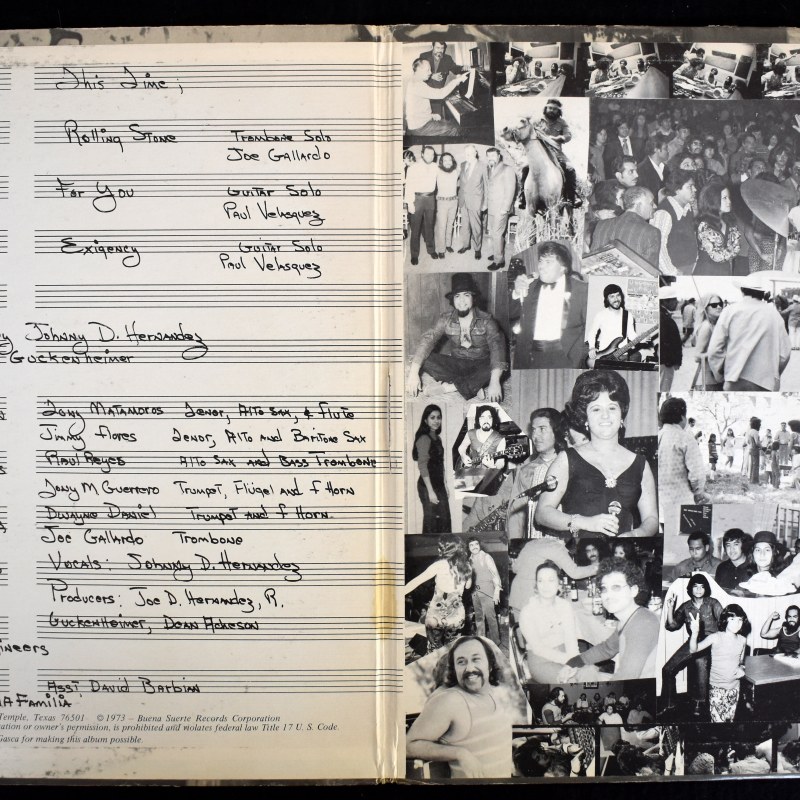 This Time;
Rolling Stone Trombone Solo
Joe Gallardo
For You Guitar Solo
Paul Velasquez
Exigency Guitar Solo
Paul Velasquez
Johnny D. Hernandez
Guckenheimer
Tony Matamoros Tenor, Alto Sax, & Flute
Jimmy Flores Tenor, Alto and Baritone Sax
Raul Reyes Alto Sax and Bass Trombone
Tony M Guerrero Trumpet, Flügel and F Horn
Dwayne Daniel Trumpet and F Horn
Joe Gallardo Trombone
Vocals: Johnny D. Hernandez
Producers: Joe D. Hernandez, R.
Guckenheimer, Dean Acheson
ineers
Asst David Barbian
A Familia
Temple, Texas 76501 ©1973 – Buena Suerte Records Corporation
ation or owner's permission, is prohibited and violates federal law Title 17 U. S. Code.
Gasca for making this album possible.